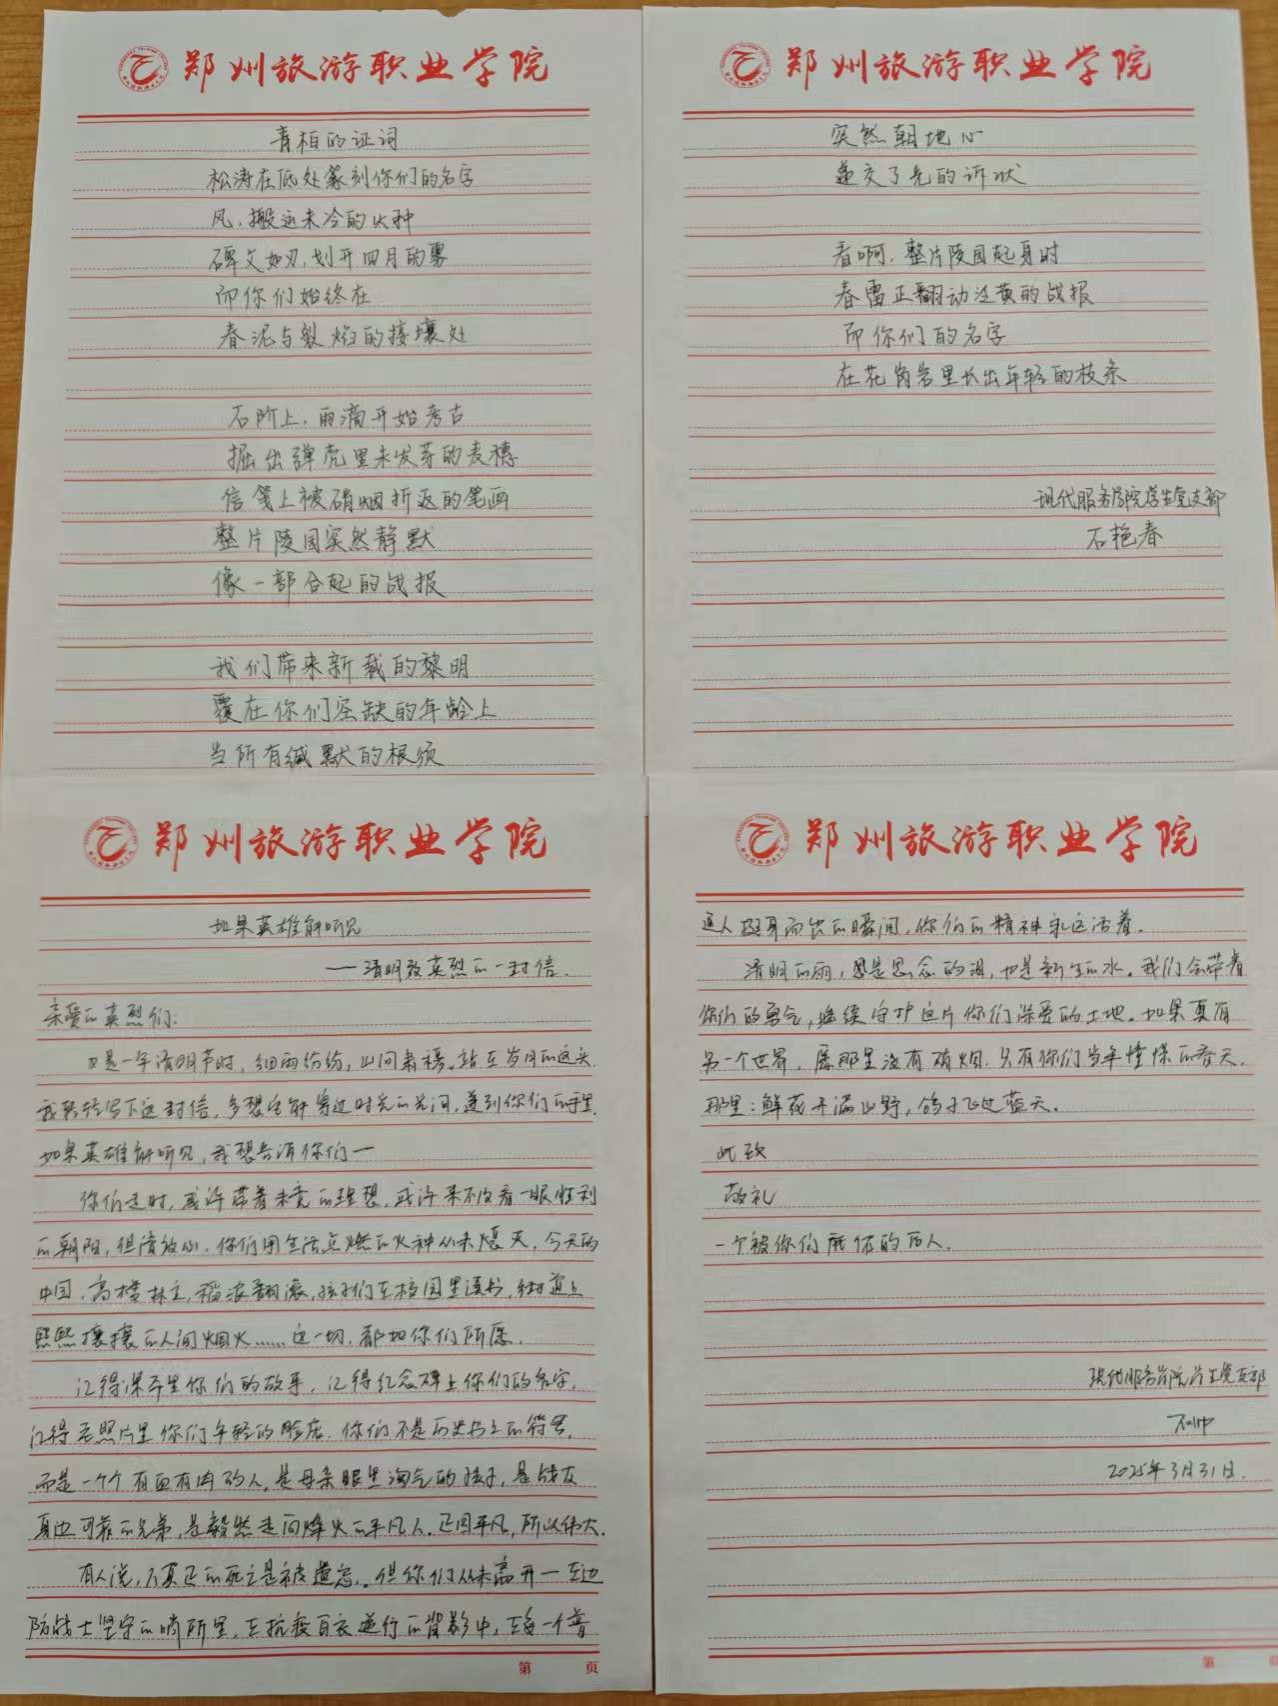 郑州旅游职业学院
青柏的证词
松涛在低处篆刻你们的名字
风,搬运未冷的火种
碑文如刃,划开四月的雾
而你们始终在
春泥与裂焰的接壤处
石阶上,雨滴开始考古
掘出弹壳里未发芽的麦穗
信笺上被硝烟折返的笔画
整片陵园突然静默
像一部合起的战报
我们带来新裁的黎明
覆在你们空缺的年龄上
当所有缄默的根须
郑州旅游职业学院
突然朝地心
递交了光的诉状
看啊,整片陵园起身时
春雷正翻动泛黄的战报
而你们的名字
在花岗岩里长出年轻的枝条
现代服务学院学生党支部
石艳春
郑州旅游职业学院
如果英雄能听见
——清明致英烈的一封信.
亲爱的英烈们:
又是一年清明节时,细雨纷纷,山间肃穆。站在岁月的这头
我轻轻写下这封信,多想它能穿过时光的长河,递到你们的手里.
如果英雄能听见,我想告诉你们—
你们走时,或许带着未竟的理想,或许来不及看一眼胜利
的朝阳,但请放心.你们用生活点燃的火种从未熄灭.今天的
中国,高楼林立,稻浪翻滚,孩子们在校园里读书,街道上
熙熙攘攘的人间烟火......这一切,都如你们所愿.
记得课本里你们的故事,记得纪念碑上你们的名字,
记得老照片里你们年轻的脸庞.你们不是历史书上的符号,
而是一个个有血有肉的人,是母亲眼里淘气的孩子,是战友
身边可靠的兄弟,是毅然走向烽火的平凡人.正因平凡,所以伟大.
有人说,真正的死亡是被遗忘..但你们从未离开—在边
防战士坚守的哨所里,在抗疫白衣逆行的背影中,在每一个普
第 页
郑州旅游职业学院
通人挺身而出的瞬间,你们的精神永远活着.
清明的雨,是思念的泪,也是新生的水。我们会带着
你们的勇气,继续守护这片你们深爱的土地.如果真有
另一个世界,愿那里没有硝烟.只有你们当年憧憬的春天.
那里:鲜花开满山野,鸽子飞过蓝天.
此致
敬礼
一个被你们庇佑的后人.
现代服务学院学生党支部
2025年3月31日.
第